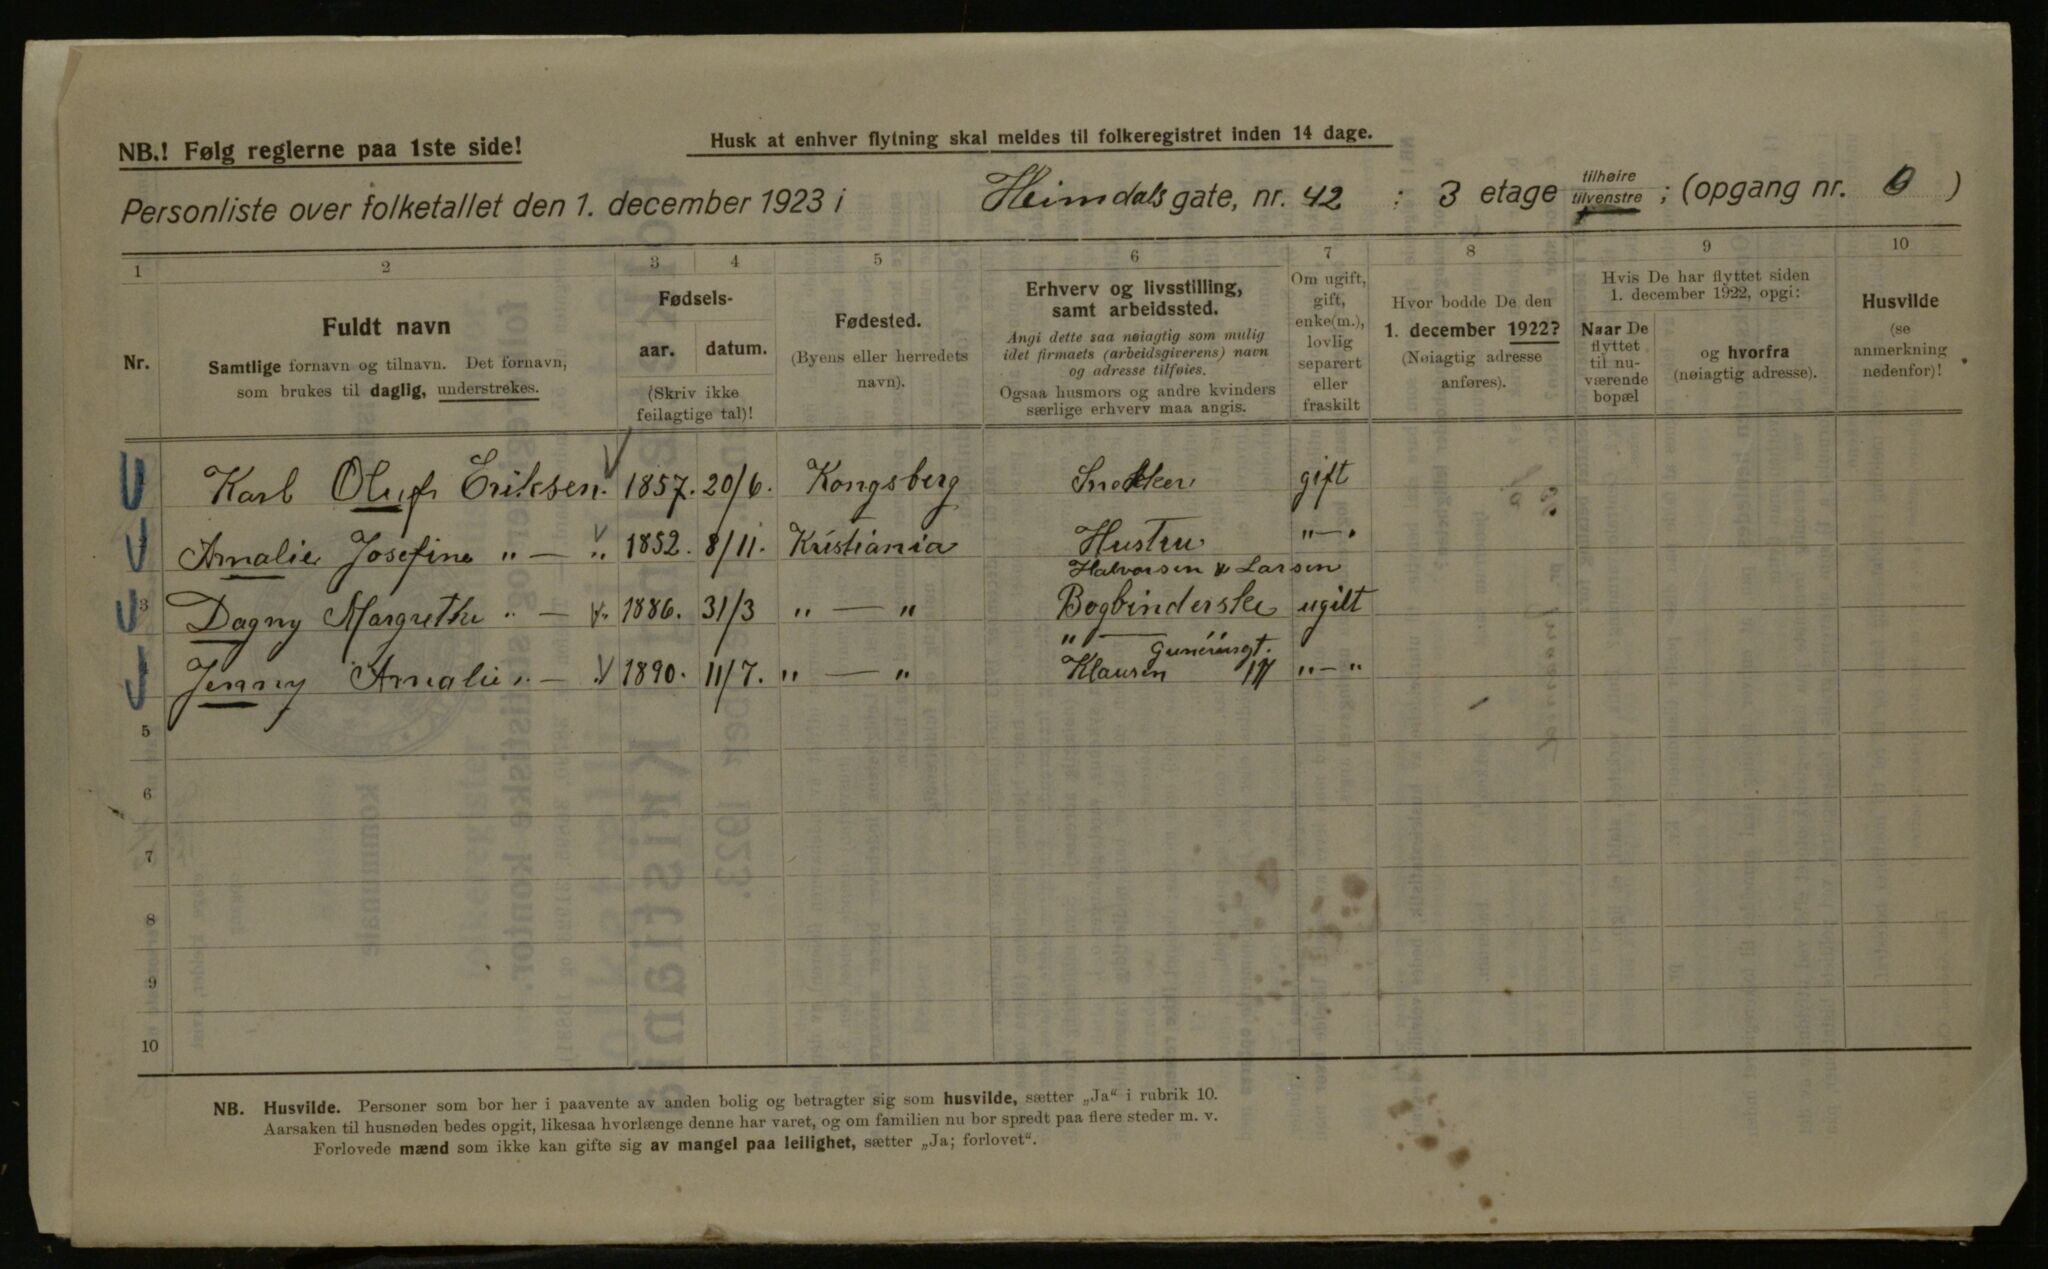 NB.! Følg reglerne paa 1ste side!
Husk at enhver flytning skal meldes til folkeregistret inden 14 dage.
Personliste over folketallet den 1. december 1923 i Heimdals gate, nr. 42 : 3 etage tilhøire tilvenstre ; (opgang nr. )
1 2 3 4 5 6 7 8 9 10
Nr.
Fuldt navn
Samtlige fornavn og tilnavn. Det fornavn,
som brukes til daglig, understrekes.
Fødsels-
aar. datum.
(Skriv ikke
feilagtige tal)!
Fødested.
(Byens eller herredets
navn).
Erhverv og livsstilling,
samt arbeidssted.
Angi dette saa nøiagtig som mulig
idet firmaets (arbeidsgiverens) navn
og adresse tilføies.
Ogsaa husmors og andre kvinders
særlige erhverv maa angis.
Om ugift,
gift,
enke(m.),
lovlig
separert
eller
fraskilt
Hvor bodde De den
1. december 1922?
(Nøiagtig adresse
anføres).
Hvis De har flyttet siden
1. december 1922, opgi:
Naar De
flyttet
til nu-
værende
bopæl
og hvorfra
(nøiagtig adresse).
Husvilde
(se
anmerkning
nedenfor)!
Karl Oluf Eriksen 1857. 20/6. Kongsberg Snekker gift
Amalie Josefine " — " 1852. 8/11. Kristiania Hustru " — "
Halvorsen & Larsen
3 Dagny Margrethe " — " 1886. 31/3 " — " Bogbinderske ugift
" —
Jenny Amalie " — " 1890. 11/7. " — " Klausen " — "
5
6
7
8
9
10
NB. Husvilde. Personer som bor her i paavente av anden bolig og betragter sig som husvilde, sætter „Ja“ i rubrik 10.
Aarsaken til husnøden bedes opgit, likesaa hvorlænge denne har varet, og om familien nu bor spredt paa flere steder m. v.
Forlovede mænd som ikke kan gifte sig av mangel paa leilighet, sætter „Ja; forlovet“.